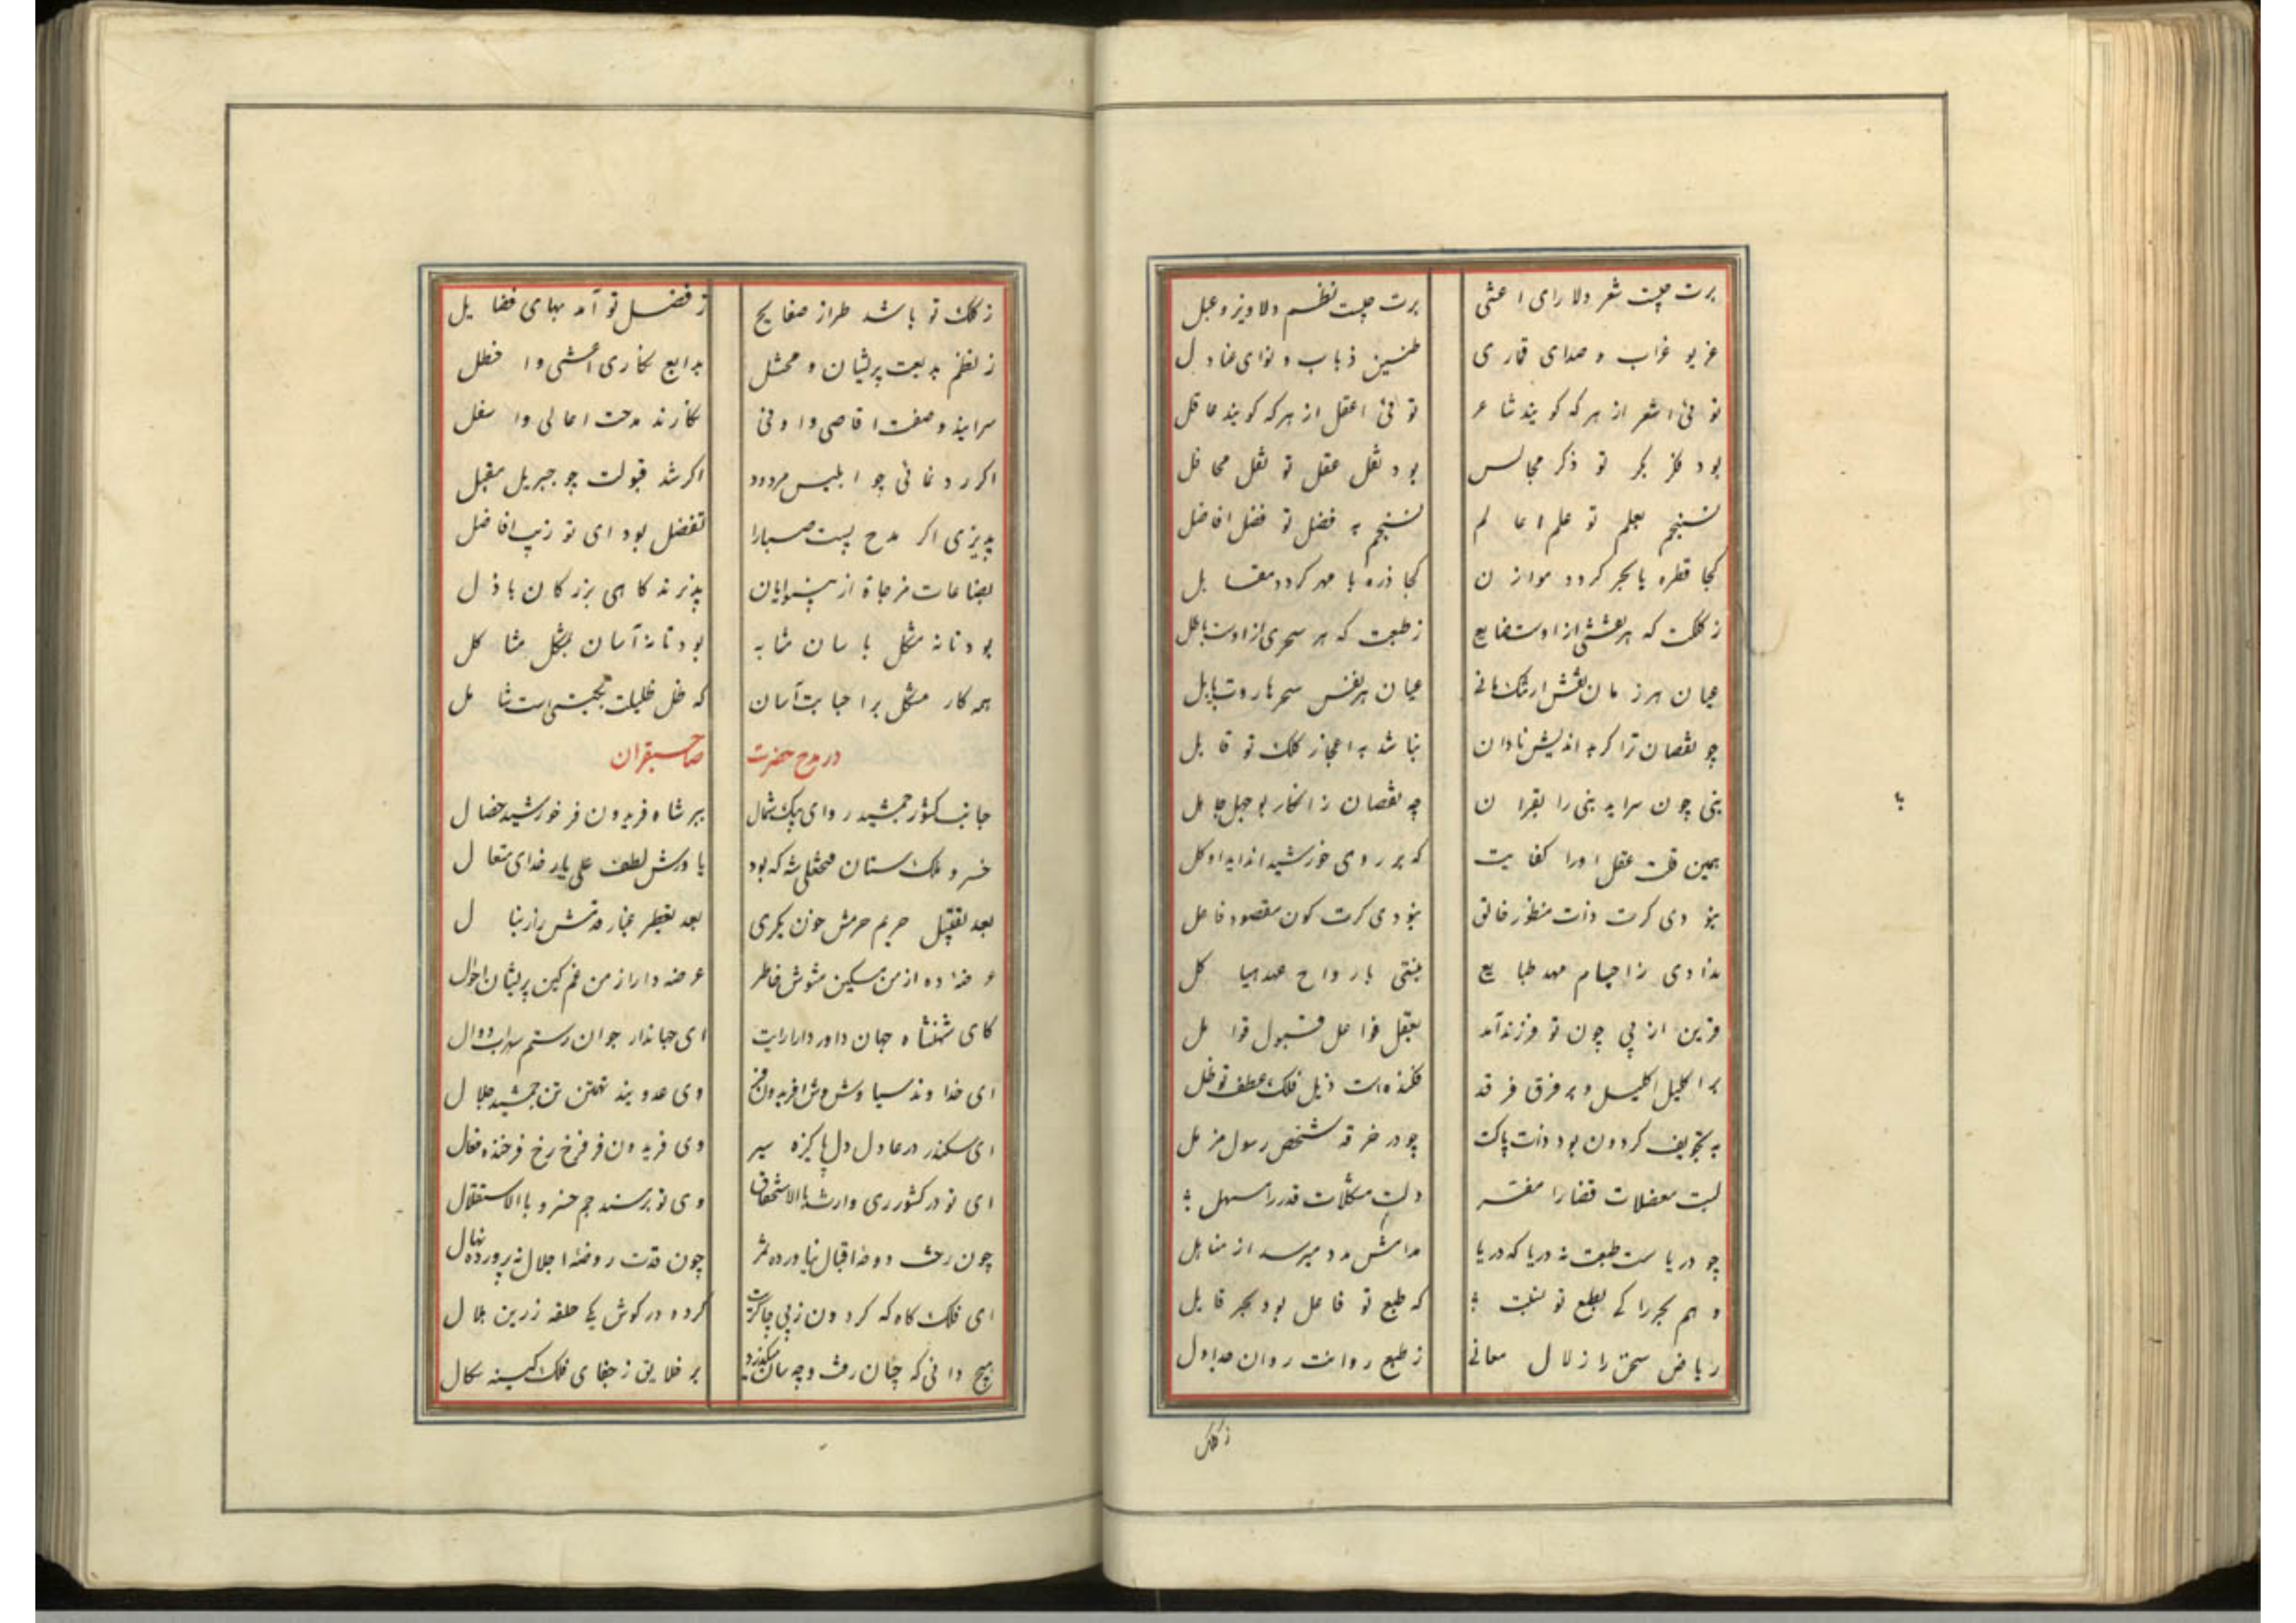 برت چیست شعر دلارای اعشی برت چیست نظم دلاویز دعبل
غریو غراب و صدای قماری طنین ذباب و نوای عنادل
توئی اشعر از هر که کویند شاعر توئی اعقل از هر که کویند عاقل
بود فکر بکر تو ذکر مجالس بود نقل عقل تو نقل محافل
نسنجم بعلم تو علم اعالم نسنجم به فضل تو فضل افاضل
کجا قطره با بحر کردد موازن کجا ذره با مهر کردد مقابل
ز کلکت که هر نقشی از اوست ضایع ز طبعت که هر سحری از اوست باطل
عیان هر زمان نقش ارتنک مانی عیان هر نفس سحر هاروت بابل
چو نقصان ترا کر بد اندیش نادان نباشد به اعجاز کلک تو قایل
نبی چون سراید نبی را بقران چه نقصان ز انکار بوجهل جاهل
همین قلت عقل اورا کفایت که بر روی خورشید انداید او کل
نبودی کرت ذات منظور خالق نبودی کرت کون مقصود فاعل
ندادی ز اجسام مهد طبایع نبستی بارواح عهد هیاکل
قرین از پی چون تو فرزند آمد بعقل فواعل قبول قوابل
بر اکلیل اکلیل و بر فرق فرقد فکنده است ذیل فلک عطف تو ظل
به تجویف کردون بود ذات پاکت چو در خرقه شخص رسول مزمل
لبت معضلات قضا را مفسر دلت مشکلات قدر را مسهل
چو دریاست طبعت نه دریا که دریا مدامش مدد میرسد از مناهل
وهم بحر را کی بطبع تو نسبت که طبع تو فاعل بود بحر قابل
ریاض سخن را زلال معانی ز طبع روانت روان جداول
ز کلک
ز کلک تو باشد طراز صفایح ز فضل تو آمد بهای فضایل
ز نظم بدیعت پریشان و مختل بدایع نکاری اعشی و اخطل
سرایند وصفت اقاصی و ادنی نکارند مدحت اعالی و اسفل
اکر رد نمائی چو ابلیس مردود اکر شد قبولت چو جبریل مقبل
پذیری اکر مدح پست صبا را تفضل بود ای تو زیب افاضل
بضاعات مزجاة از بینوایان پذیرند کاهی بزرکان باذل
بود تا نه مشکل باسان مشابه بود تا نه آسان بمشکل مشاکل
همه کار مشکل بر احبابت آسان که ظل ظلیلت بجمعی است شامل
در مدح حضرت صاحبقران
جانب کشور جمشید رو ای پیک شمال ببر شاه فریدون فر خورشید خصال
خسرو ملک ستان فتحعلی شه که بود یاورش لطف علی یار خدای متعال
بعد تقبیل حریم حرمش چون بکری بعد تعطیر غبار قدمش راز بنال
عرضه ده از من مسکین مشوش خاطر عرضه دار از من غمکین پریشان احوال
کای شهنشاه جهان داور دارا رایت ای جهاندار جوان رستم سهراب دوال
ای خداوند سیاوش وش افریدون فر وی عدو بند تهمتن تن جمشید جلال
ای سکندر در عادل دل پاکیزه سیر وی فریدون فر فرخ رخ فرخنده فعال
ای تو در کشور ری وارث بالاستحقاق وی تو بر مسند جم خسرو باالاستقلال
چون رخت دوحه اقبال نیاورده ثمر چون قدت روضهٔ اجلال نه پرورده نهال
ای فلک کاه که کردون ز پی چاکریت کرده در کوش یکی حلقه زرین هلال
هیچ دانی که چنان رفت و چه سان میکذرد بر خلایق ز جفای فلک کینه سکال